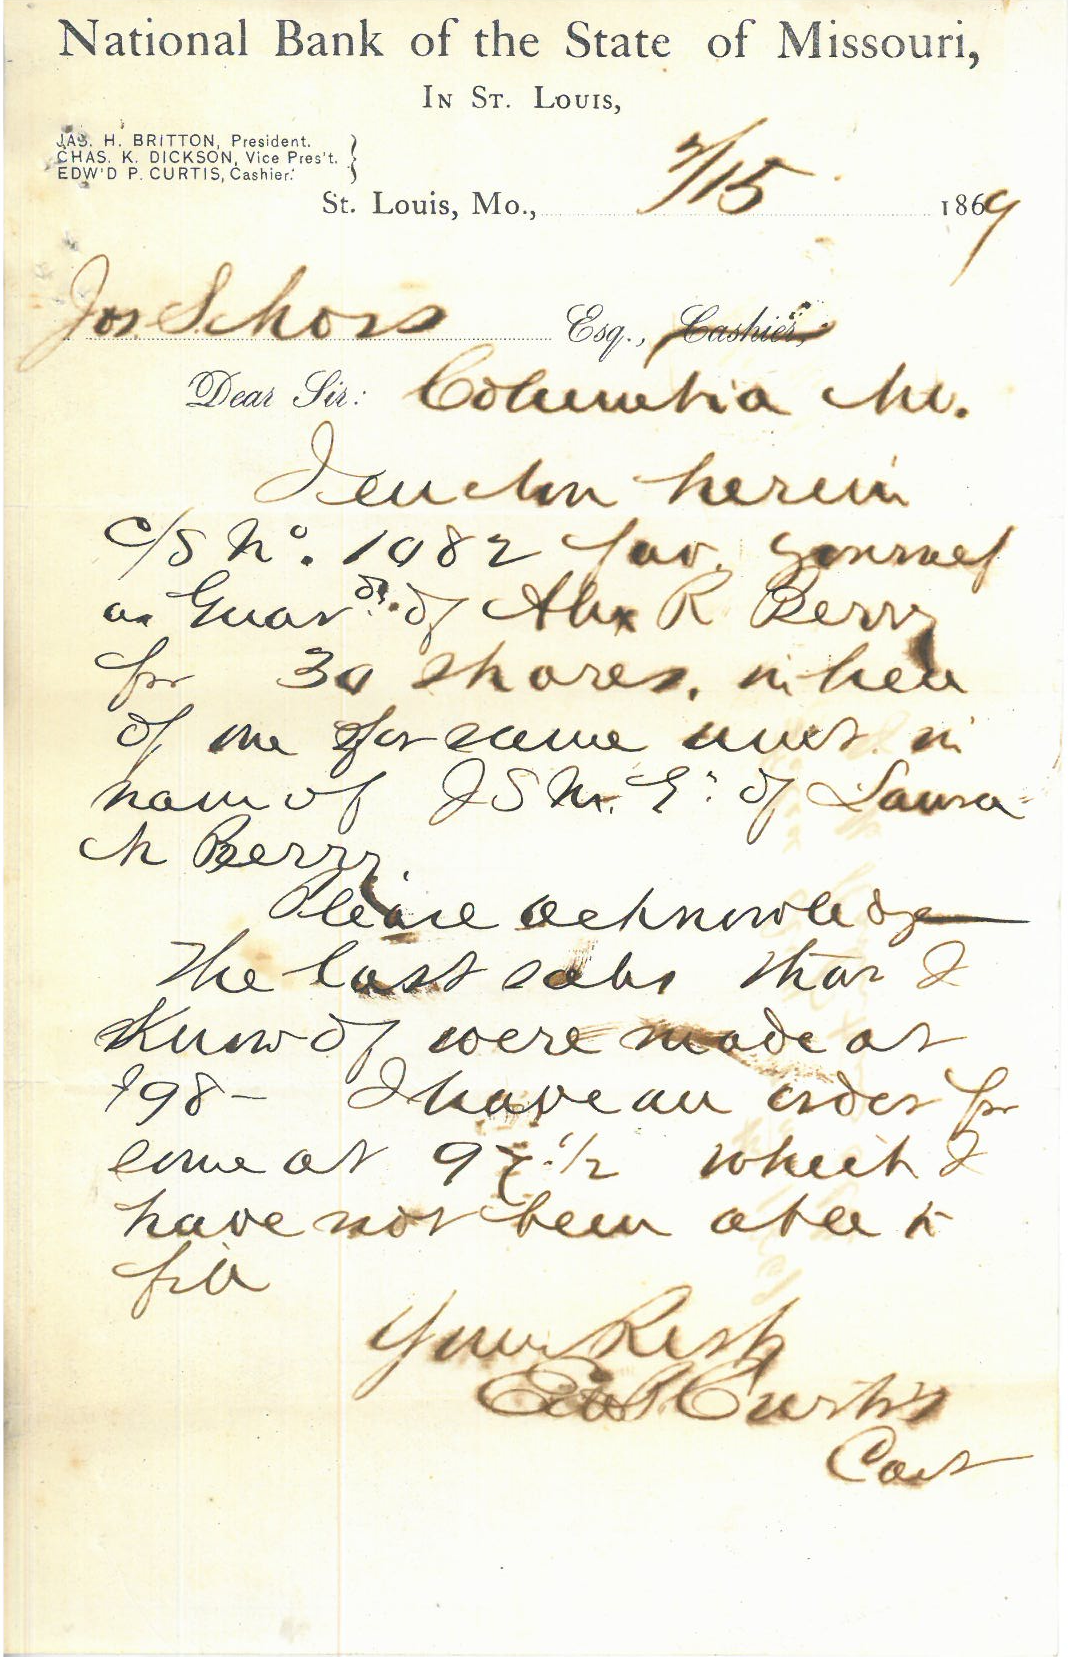 National Bank of the State of Missouri,
In St. Louis,
JAS. H. BRITTON, President.
CHAS. K. DICKSON, Vice Pres't.
EDW'D P. CURTIS, Cashier.
St. Louis, Mo., 2/15 1869
Jos. S. Moss Esq., Cashier,
Dear Sir: Columbia Mo.
I enclose herein
C/S No. 1082 fav. yourself
as Guardn. of Alex R Berry
for 30 shares, in lieu
of one for same amt. in
name of J S M. Gn. of Laura
M Berry.
Please acknowledge
The last sales that I
know of were made at
$98 - I have an order for
some at 97 1/2 which I
have not been able to
fill
Yours Resp
Ed P. Curtis
Cas